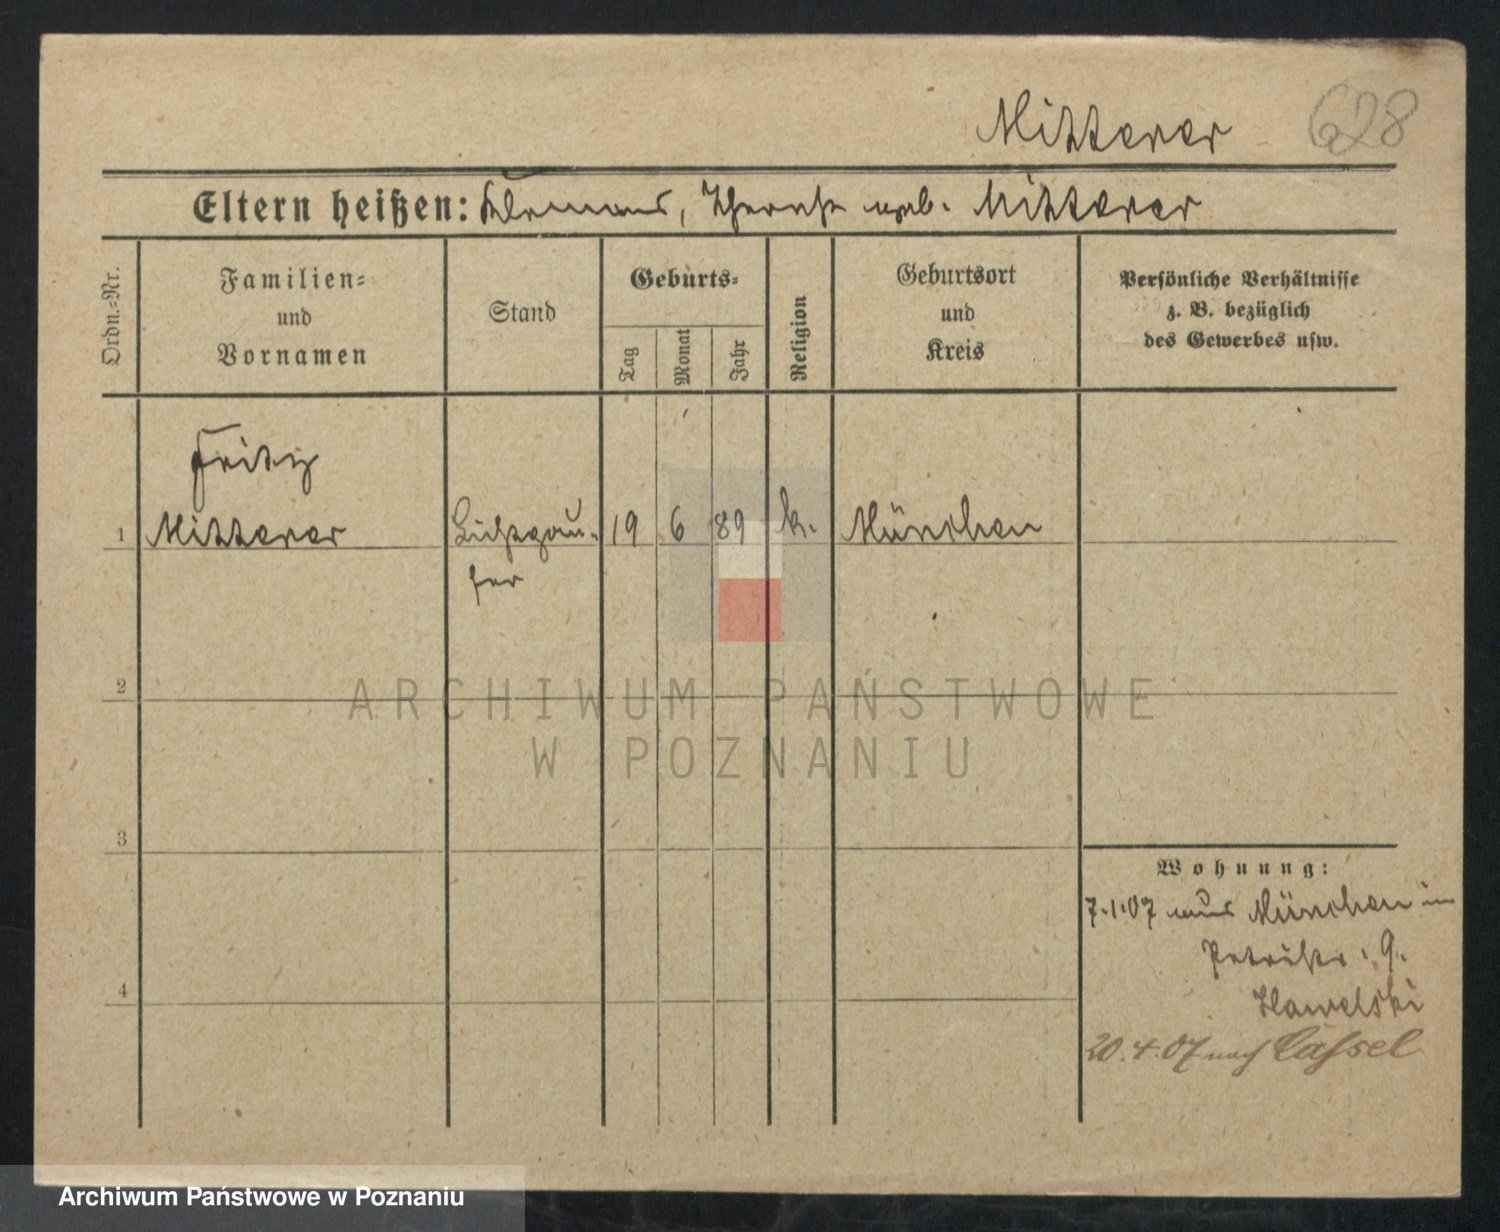 Mitterer 628
Eltern heißen: Klemens, Therese geb. Mitterer
Ordn.-Nr.
Familien-
und
Vornamen
Stand
Geburts-
Tag
Monat
Jahr
Religion
Geburtsort
und
Kreis
Persönliche Verhältnisse
z. B. bezüglich
des Gewerbes usw.
Fritz
1 Mitterer 19 6 89 k. München
2
ARCHIWUM PAŃSTWOWE
W POZNANIU
3
Wohnung:
7.1.07 aus München in
Petristr. 9.
Hawelski
4
20.4.07 nach Cassel
Archiwum Państwowe w Poznaniu